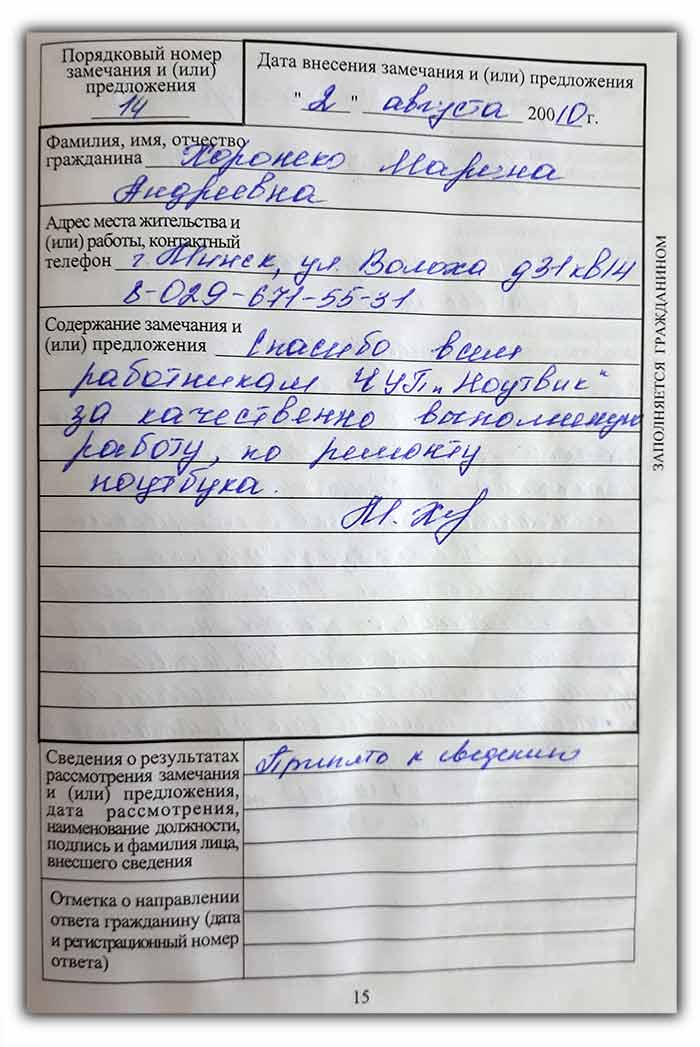 Порядковый номер
замечания и (или)
предложения
14
Дата внесения замечания и (или) предложения
"2" августа 20010 г.
Фамилия, имя, отчество
гражданина Хоронеко Марина
Андреевна
Адрес места жительства и
(или) работы, контактный
телефон г. Минск, ул. Волоха д31 кв14
8-029-671-55-31
Содержание замечания и
(или) предложения Спасибо всем
работникам ЧУП „Ноутвик“
за качественно выполненную
работу, по ремонту
ноутбука.
ЗАПОЛНЯЕТСЯ ГРАЖДАНИНОМ
Сведения о результатах
рассмотрения замечания
и (или) предложения,
дата рассмотрения,
наименование должности,
подпись и фамилия лица,
внесшего сведения
Принято к сведению
Отметка о направлении
ответа гражданину (дата
и регистрационный номер
ответа)
15